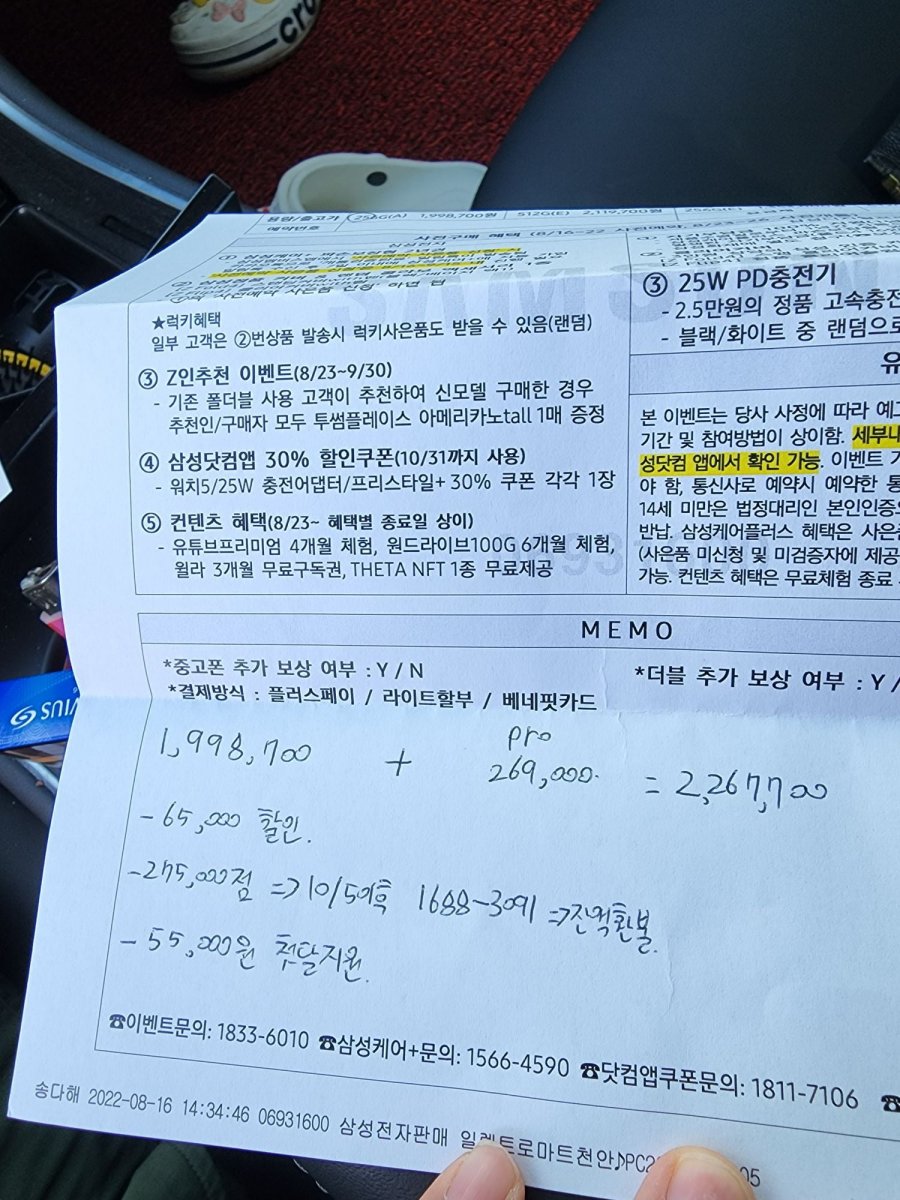 cro
용량/출고가 256G(A) 1,998,700원 512G(E) 2,119,700원 256G(E)
예약번호
★럭키혜택
일부 고객은 ②번상품 발송시 럭키사은품도 받을 수 있음(랜덤)
③ Z인추천 이벤트(8/23~9/30)
- 기존 폴더블 사용 고객이 추천하여 신모델 구매한 경우
추천인/구매자 모두 투썸플레이스 아메리카노tall 1매 증정
④ 삼성닷컴앱 30% 할인쿠폰(10/31까지 사용)
- 워치5/25W 충전어댑터/프리스타일+ 30% 쿠폰 각각 1장
⑤ 컨텐츠 혜택(8/23~ 혜택별 종료일 상이)
- 유튜브프리미엄 4개월 체험, 원드라이브100G 6개월 체험,
윌라 3개월 무료구독권, THETA NFT 1종 무료제공
③ 25W PD충전기
- 2.5만원의 정품 고속충전
- 블랙/화이트 중 랜덤으로
유
본 이벤트는 당사 사정에 따라 예고
기간 및 참여방법이 상이함. 세부내
성닷컴 앱에서 확인 가능. 이벤트 기
야 함, 통신사로 예약시 예약한 통
14세 미만은 법정대리인 본인인증
반납. 삼성케어플러스 혜택은 사은
(사은품 미신청 및 미검증자에 제공
가능. 컨텐츠 혜택은 무료체험 종료
MEMO
*중고폰 추가 보상 여부 : Y / N
*더블 추가 보상 여부 : Y /
*결제방식 : 플러스페이 / 라이트할부 / 베네핏카드
pro
1,998,700 + 269,000. = 2,267,700
-65,000 할인.
-275,000점 => 10/5이후 1688-3091 => 잔액환불.
-55,000원 첫달지원.
☎이벤트문의: 1833-6010 ☎삼성케어+문의: 1566-4590 ☎닷컴앱쿠폰문의: 1811-7106 ☎
송다해 2022-08-16 14:34:46 06931600 삼성전자판매 일렉트로마트천안♪PC2 05